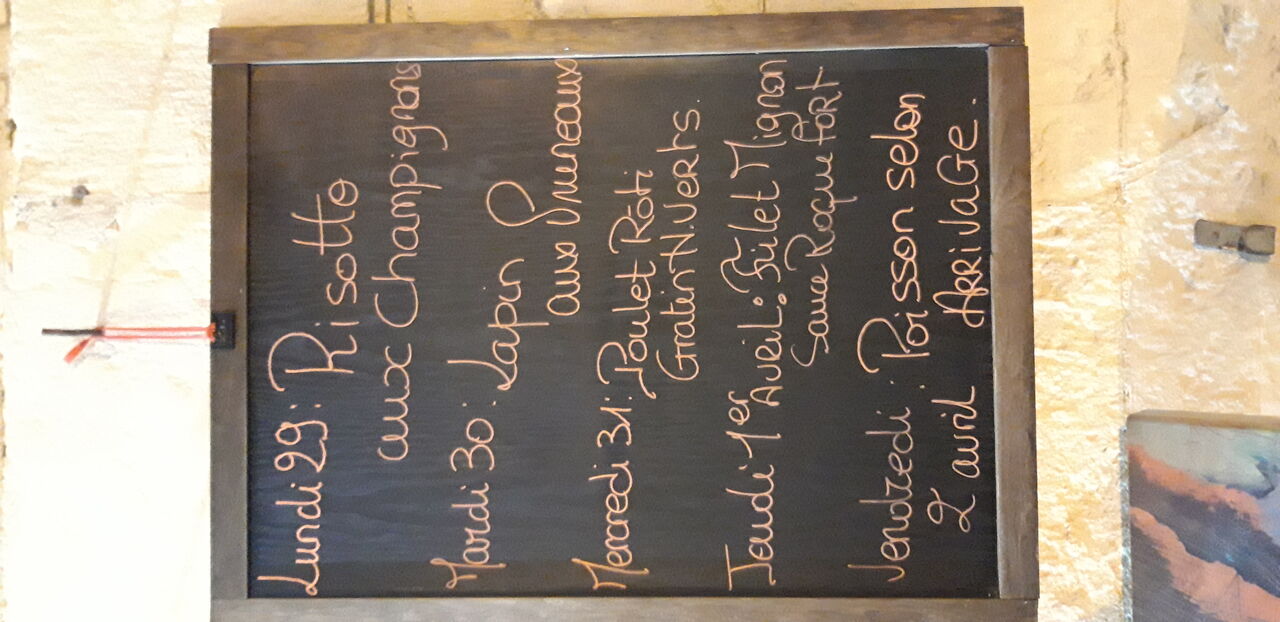 Lundi 29: Risotto
aux Champignons
Mardi 30: Lapin
aux Pruneaux
Mercredi 31: Poulet Rôti
Gratin H.Verts.
Jeudi 1er Avril: Filet Mignon
Sauce Roquefort
Vendredi: Poisson selon
2 avril ARRivaGe.